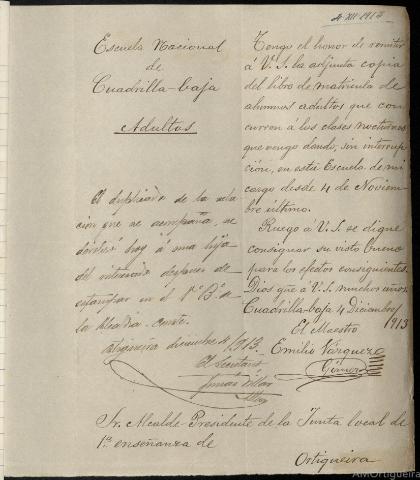 4-XII-1913
Escuela Nacional
de
Cuadrilla-baja
Adultos
Tengo el honor de remitir
á V.S. la adjunta copia
del libro de matrícula de
alumnos adultos que con-
curren á las clases nocturnas
que vengo dando, sin interrup-
ción, en esta Escuela de mi
cargo desde 4 de Noviem-
bre último.
Ruego á V.S. se digne
consignar su visto bueno
para los efectos consiguientes.
Dios gue á V.S. muchos años.
Cuadrilla-baja 4 Diciembre/
1913
El Maestro
Emilio Vázquez
Gómez
El duplicado de la rela-
ción que se acompaña, se
devolvió hoy á una hija
del interesado despues de
estampar en el Vº Bº de
la Alcaldía. conste.
Ortigueira diciembre 4/1913.
El Secretario
Sr. Alcalde-Presidente de la Junta local de
1ª enseñanza de
Ortigueira
AMOrtigueira